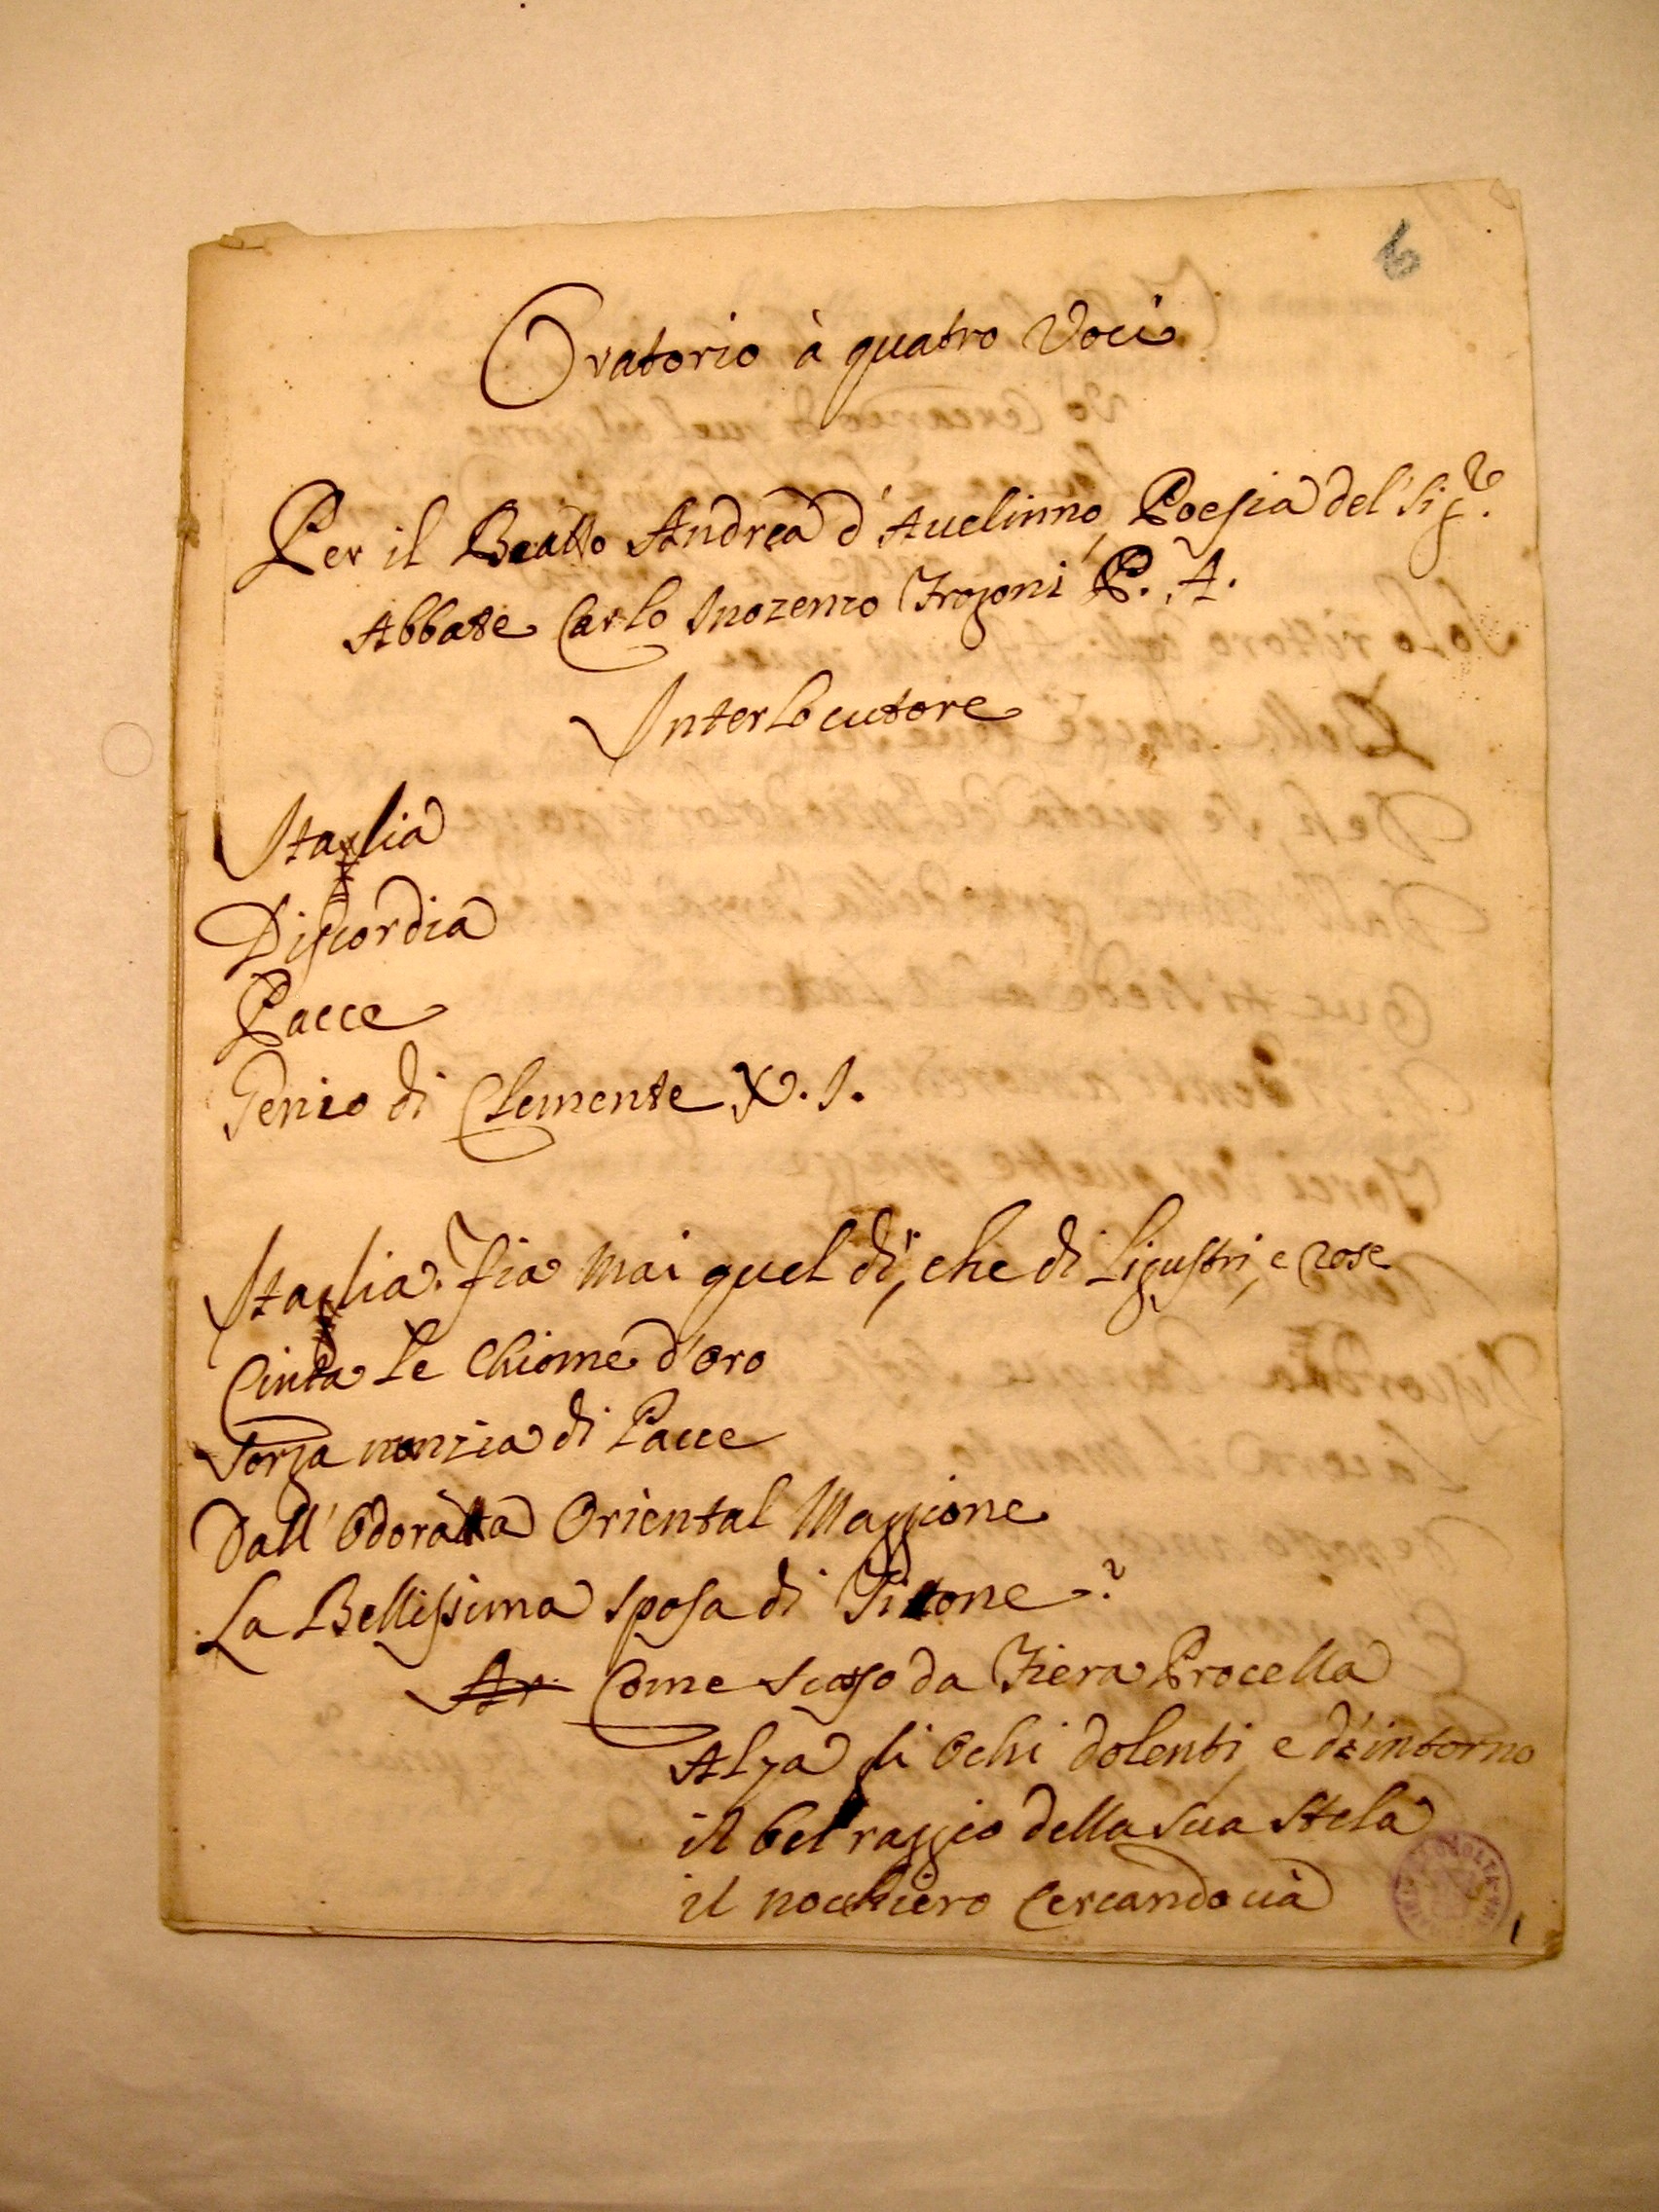 6
Oratorio à quatro Voci
Per il Beatto Andrea d'Avelinno, Poesia del Sig.re
Abbate Carlo Inozenzo Frogoni P. A.
Interlocutore
Itaglia
Discordia
Pacce
Genio di Clemente X.I.
Itaglia. Fia mai quel dì, che di Ligustri, e rose
Cinta Le Chiome d'oro
Sorga nonzia di Pacce
Dall'Odoratta Oriental Maggione
La Bellissima sposa di Titone?
Come scosso da Fiera Procella
Alza gli Ochi dolenti, e d'intorno
il bel raggio della sua Stela
il nochiero Cercando và
1